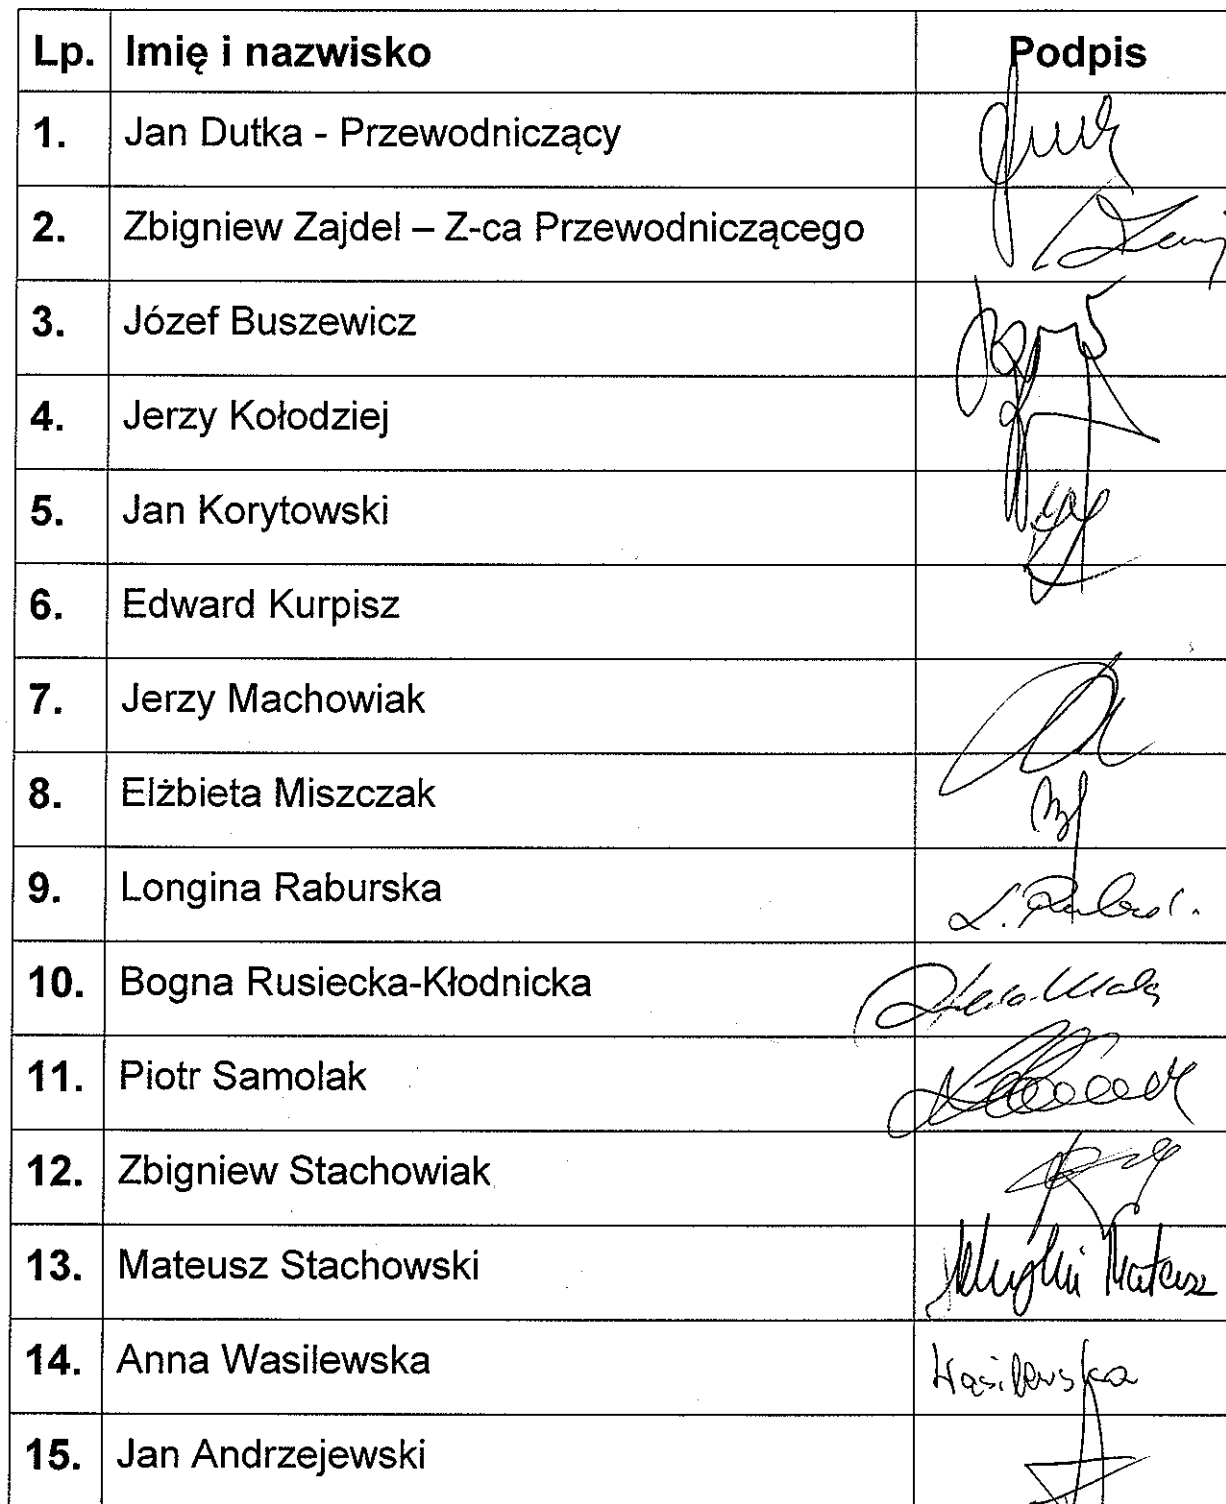 Lp. Imię i nazwisko Podpis
1. Jan Dutka - Przewodniczący
2. Zbigniew Zajdel – Z-ca Przewodniczącego
3. Józef Buszewicz
4. Jerzy Kołodziej
5. Jan Korytowski
6. Edward Kurpisz
7. Jerzy Machowiak
8. Elżbieta Miszczak
9. Longina Raburska L.
10. Bogna Rusiecka-Kłodnicka
11. Piotr Samolak
12. Zbigniew Stachowiak
13. Mateusz Stachowski Mateusz
14. Anna Wasilewska Wasilewska
15. Jan Andrzejewski